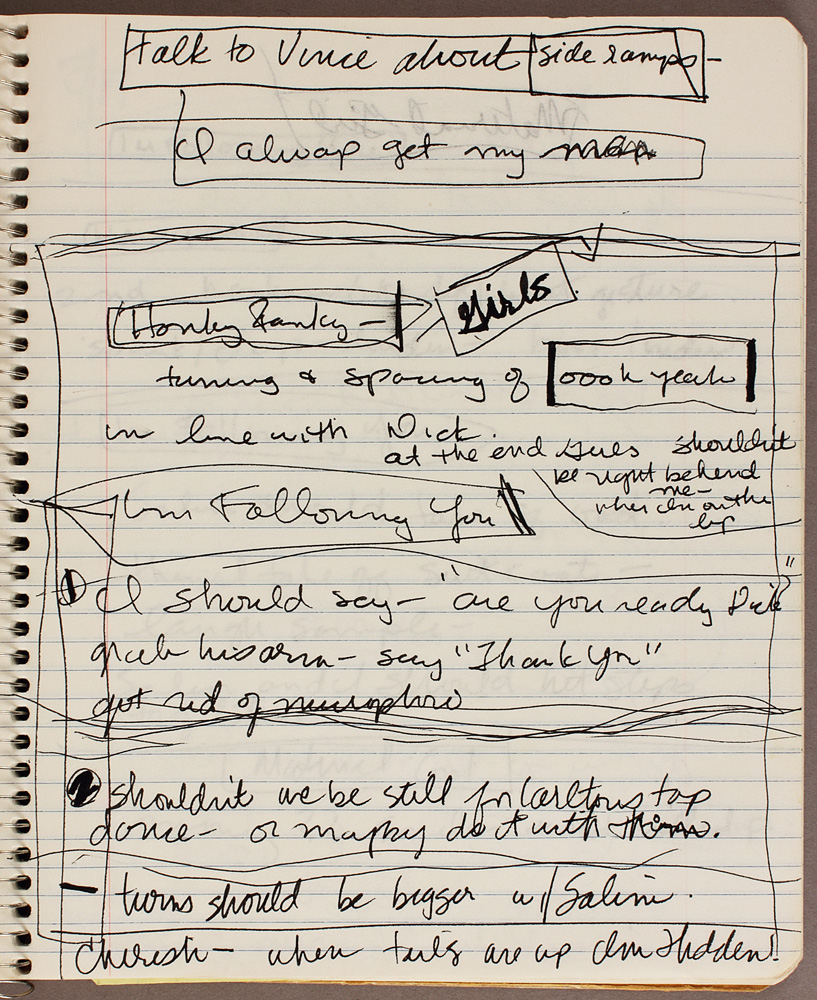 Talk to Vince about side ramps-
I always get my man
Hanky Panky - Girls
timing & spacing of oooh yeah
in line with Dick.
at the end guies shouldnt
be right behend
me-
when Im on the
lip
Im Following You
1 I should say- "are you ready Dick"
grab his arm- say "Thank you"
get rid of microphone
2 shouldnt we be still for Carltons tap
dance- or maybe do it with him.
- turns should be bigger w/ Salim.
Cherish- when tails are up Im hidden!